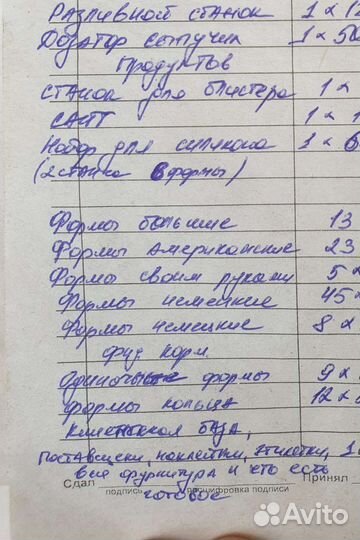 Разливной станок 1 x 1
Дозатор сыпучих 1 x 50
продуктов
станок для блистера 1 x
САЙТ 1 x 1
Набор для силикона 1 x 6
(2 станка 6 формы)
Формы большие 13
Формы Американские 23
Формы своими руками 5 x
Формы немецкие 45 x
Формы немецкие 8 x
фуд корм
одиночные формы 9 x
формы кольца 12 x
Клиентская база,
поставщики, наклейки, этикетки,
вся фурнитура и что есть
готовое
Сдал Принял
подпись расшифровка подписи
Avito